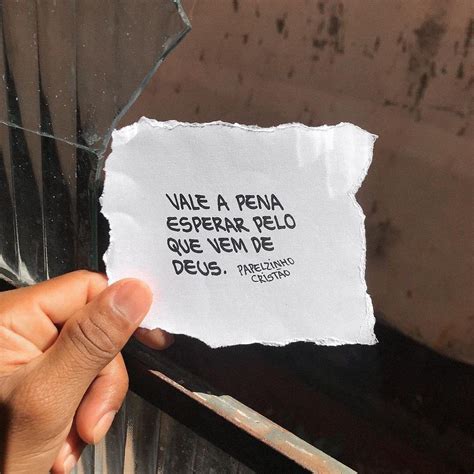 VALE A PENA
ESPERAR PELO
QUE VEM DE
DEUS.
PAPELZINHO
CRISTÃO